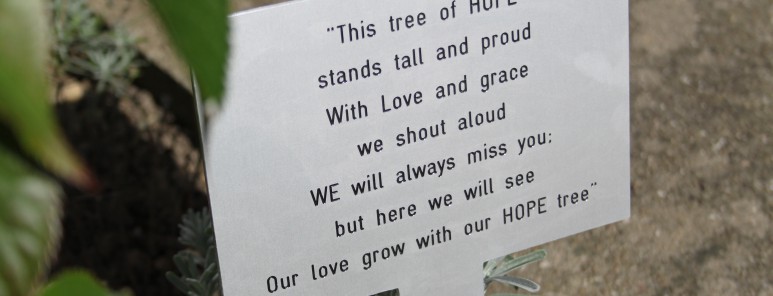 "This tree of HOPE
stands tall and proud
With Love and grace
we shout aloud
WE will always miss you;
but here we will see
Our love grow with our HOPE tree"